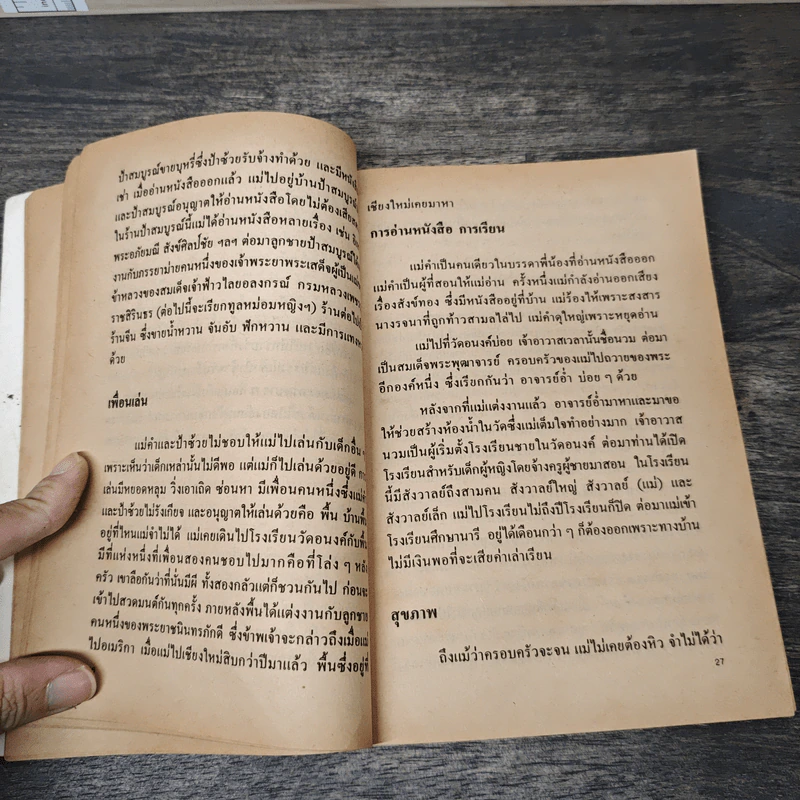 ป้าสมบูรณ์ขายบุหรี่ซึ่งป้าซ้วยรับจ้างทำด้วย และมีหนัง
เช่า เมื่ออ่านหนังสือออกแล้ว แม่ไปอยู่บ้านป้าสมบูรณ์
และป้าสมบูรณ์อนุญาตให้อ่านหนังสือโดยไม่ต้องเสีย
ในร้านป้าสมบูรณ์นี้แม่ได้อ่านหนังสือหลายเรื่อง เช่น
พระอภัยมณี สังข์ศิลปชัย ฯลฯ ต่อมาลูกชายป้าสมบูรณ์
งานกับภรรยาม่ายคนหนึ่งของเจ้าพระยาพระเสด็จผู้เป็น
ข้าหลวงของสมเด็จเจ้าฟ้าวไลยอลงกรณ์ กรมหลวงเพชร
ราชสิรินธร (ต่อไปนี้จะเรียกทูลหม่อมหญิงฯ) ร้านต่อไป
ร้านจีน ซึ่งขายน้ำหวาน จันอับ ฟักหวาน และมีการแทง
ด้วย
เพื่อนเล่น
แม่คำและป้าซ้วยไม่ชอบให้แม่ไปเล่นกับเด็กอื่น ๆ
เพราะเห็นว่าเด็กเหล่านั้นไม่ดีพอ แต่แม่ก็ไปเล่นด้วยอยู่ดี
เล่นมีหยอดหลุม วิ่งเอาเถิด ซ่อนหา มีเพื่อนคนหนึ่งซึ่งแม่
และป้าซ้วยไม่รังเกียจ และอนุญาตให้เล่นด้วยคือ พื้น บ้านพื้น
อยู่ที่ไหนแม่จำไม่ได้ แม่เคยเดินไปโรงเรียนวัดอนงค์กับพื้น
มีที่แห่งหนึ่งที่เพื่อนสองคนชอบไปมากคือที่โล่ง ๆ หลัง
ครัว เขาลือกันว่าที่นั่นมีผี ทั้งสองกลัวแต่ก็ชวนกันไป ก่อนจะ
เข้าไปสวดมนต์กันทุกครั้ง ภายหลังพื้นได้แต่งงานกับลูกชาย
คนหนึ่งของพระยาชนินทรภักดี ซึ่งข้าพเจ้าจะกล่าวถึงเมื่อแม่
ไปอเมริกา เมื่อแม่ไปเชียงใหม่สิบกว่าปีมาแล้ว พื้นซึ่งอยู่ที่
เชียงใหม่เคยมาหา
การอ่านหนังสือ การเรียน
แม่คำเป็นคนเดียวในบรรดาพี่น้องที่อ่านหนังสือออก
แม่คำเป็นผู้ที่สอนให้แม่อ่าน ครั้งหนึ่งแม่กำลังอ่านออกเสียง
เรื่องสังข์ทอง ซึ่งมีหนังสืออยู่ที่บ้าน แม่ร้องไห้เพราะสงสาร
นางรจนาที่ถูกท้าวสามลไล่ไป แม่คำดุใหญ่เพราะหยุดอ่าน
แม่ไปที่วัดอนงค์บ่อย เจ้าอาวาสเวลานั้นชื่อนวม ต่อมา
เป็นสมเด็จพระพุฒาจารย์ ครอบครัวของแม่ไปถวายของพระ
อีกองค์หนึ่ง ซึ่งเรียกกันว่า อาจารย์อ่ำ บ่อย ๆ ด้วย
หลังจากที่แม่แต่งงานแล้ว อาจารย์อ่ำมาหาและมาขอ
ให้ช่วยสร้างห้องน้ำในวัดซึ่งแม่เต็มใจทำอย่างมาก เจ้าอาวาส
นวมเป็นผู้เริ่มตั้งโรงเรียนชายในวัดอนงค์ ต่อมาท่านได้เปิด
โรงเรียนสำหรับเด็กผู้หญิงโดยจ้างครูผู้ชายมาสอน ในโรงเรียน
นี้มีสังวาลย์ถึงสามคน สังวาลย์ใหญ่ สังวาลย์ (แม่) และ
สังวาลย์เล็ก แม่ไปโรงเรียนไม่ถึงปีโรงเรียนก็ปิด ต่อมาแม่เข้า
โรงเรียนศึกษานารี อยู่ได้เดือนกว่า ๆ ก็ต้องออกเพราะทางบ้าน
ไม่มีเงินพอที่จะเสียค่าเล่าเรียน
สุขภาพ
ถึงแม้ว่าครอบครัวจะจน แม่ไม่เคยต้องหิว จำไม่ได้ว่า
27